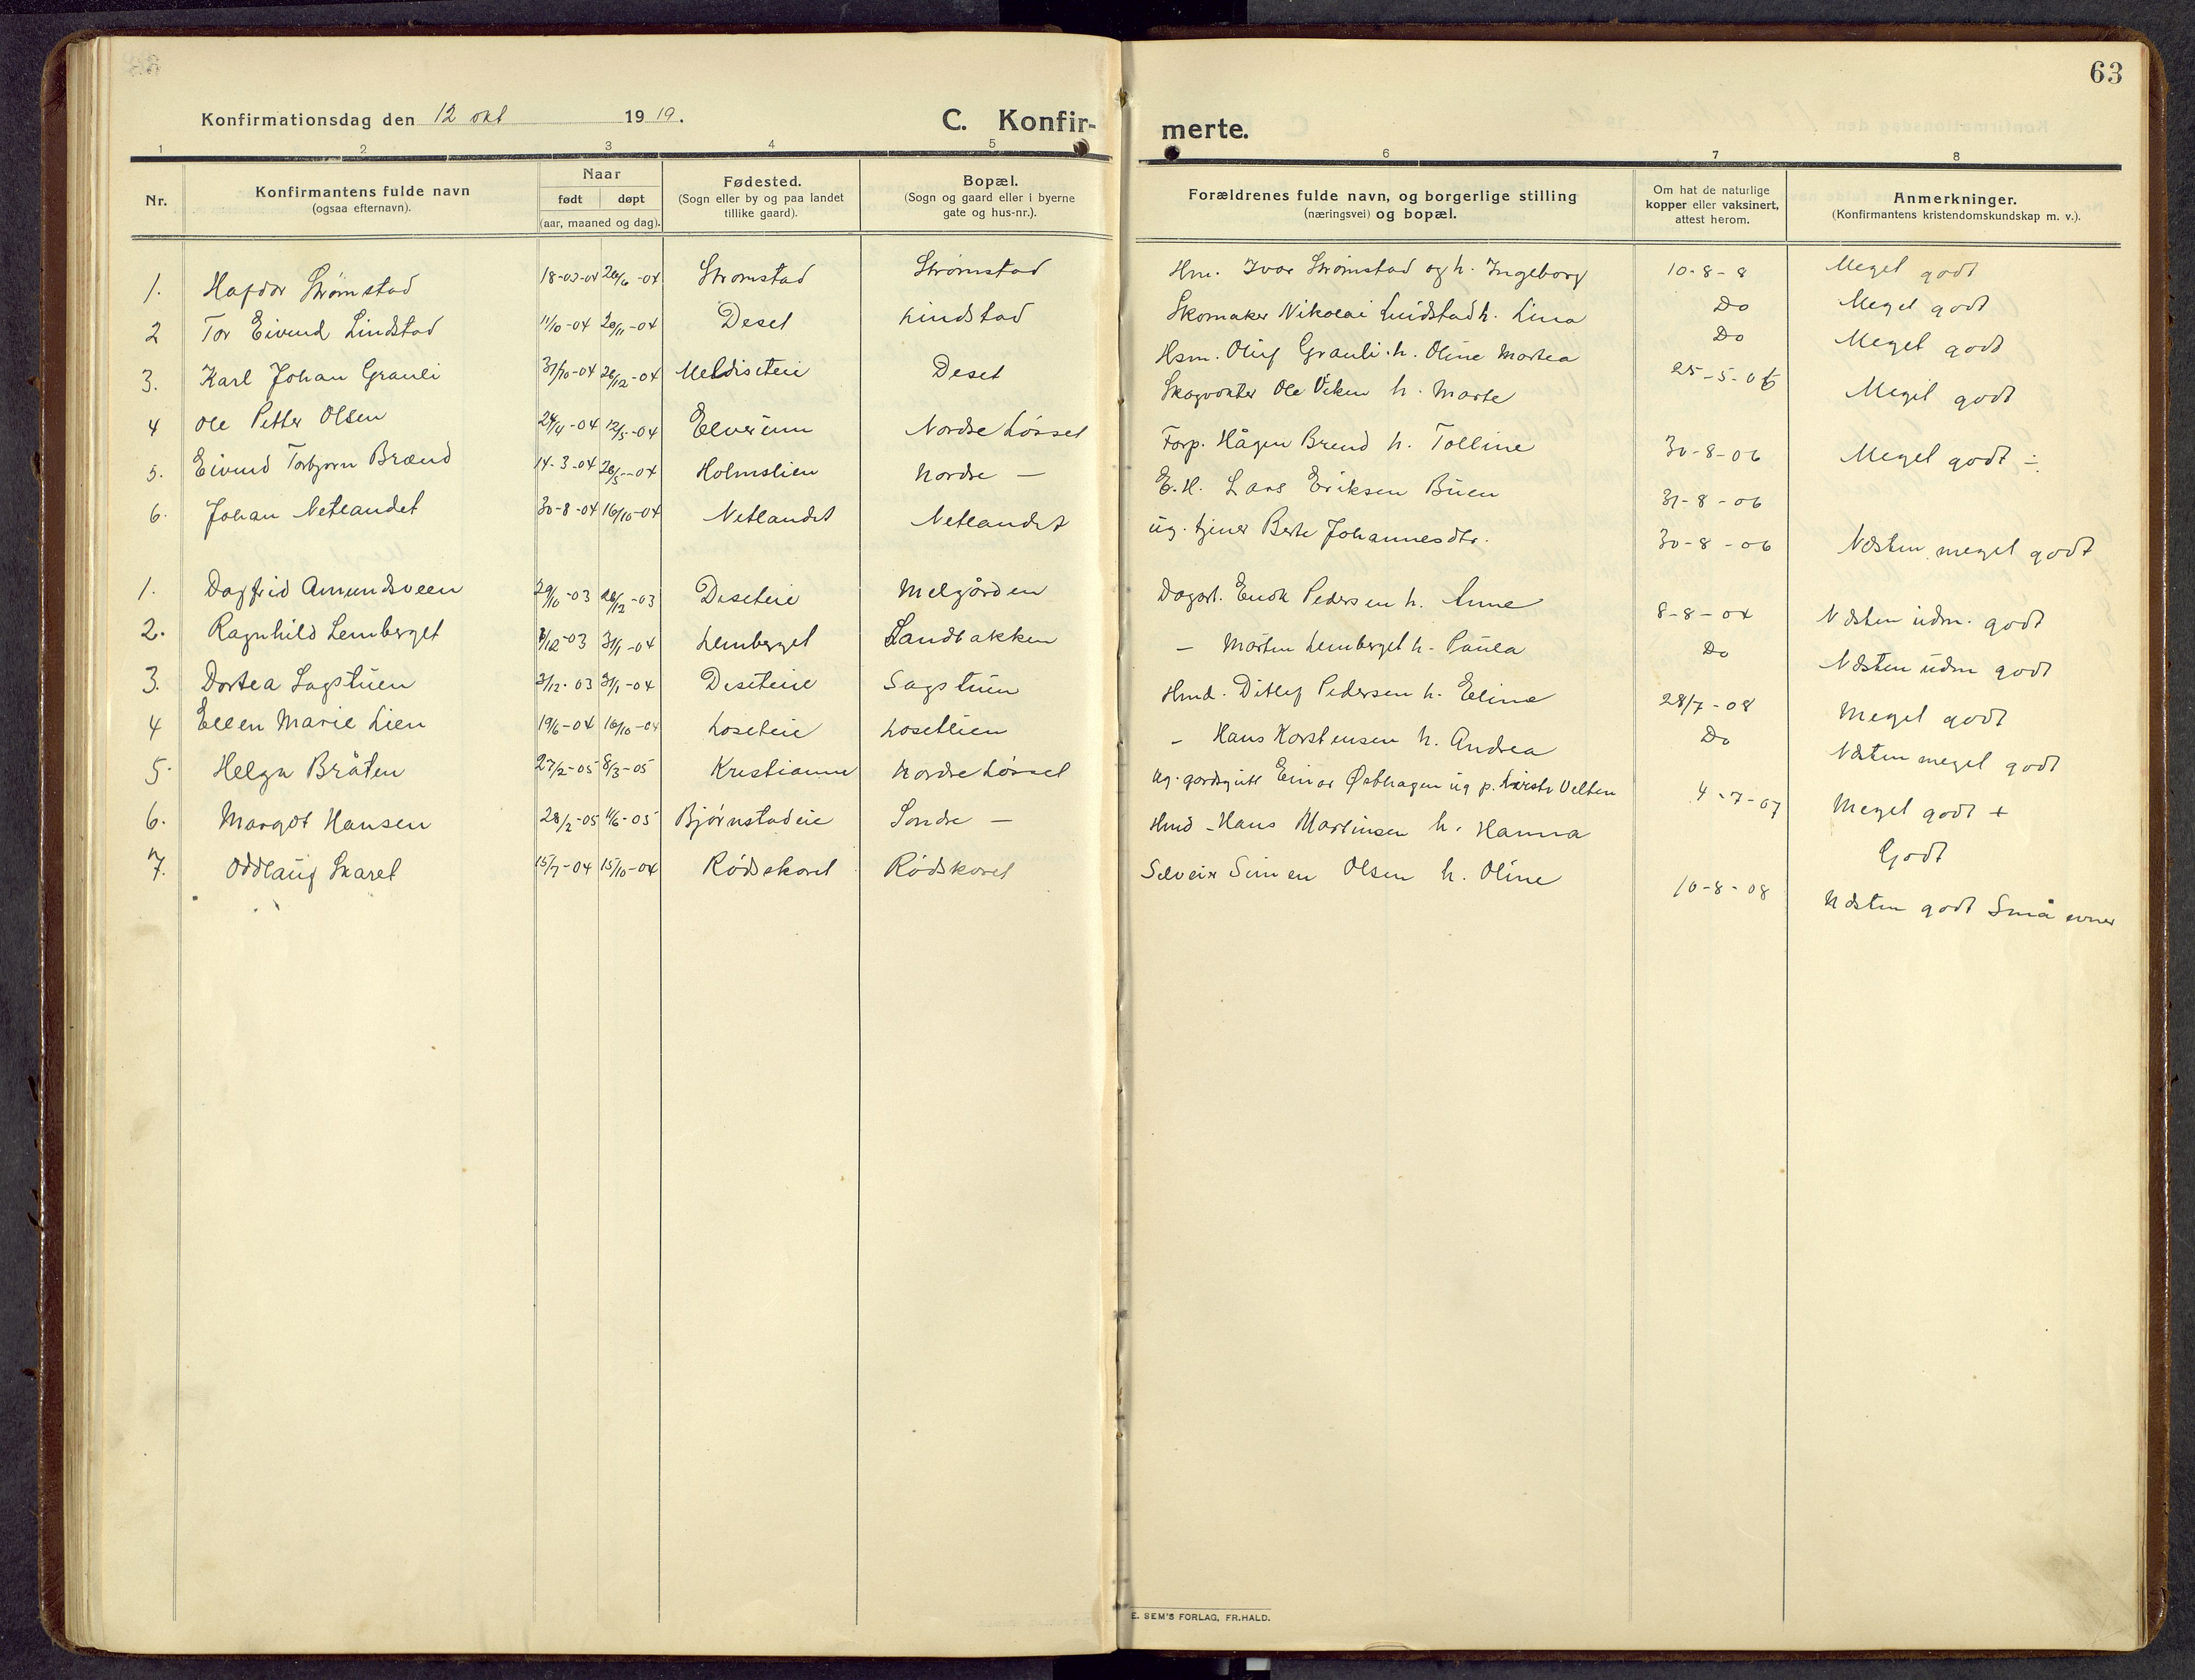 63
Konfirmationsdag den 12 okt 1919.
C. Konfirmerte.
1 2 3 4 5 6 7 8
Nr.
Konfirmantens fulde navn
(ogsaa efternavn).
Naar
født døpt
(aar, maaned og dag).
Fødested.
(Sogn eller by og paa landet
tillike gaard).
Bopæl.
(Sogn og gaard eller i byerne
gate og hus-nr.).
Forældrenes fulde navn, og borgerlige stilling
(næringsvei) og bopæl.
Om hat de naturlige
kopper eller vaksinert,
attest herom.
Anmerkninger.
(Konfirmantens kristendomskundskap m. v.).
1. Hafdor Strømstad 18-03-04 26/6-04 Strømstad Strømstad Hm. Ivar Strømstad og h. Ingeborg 10-8-8 Meget godt
2 Tor Eivind Lindstad 11/10-04 20/11-04 Deset Lindstad Skomaker Nikolai Lindstad h. Lina Do Meget godt
3. Karl Johan Granli 31/10-04 26/12-04 Deset Hsm. Oluf Granli h. Oline Martea Do Meget godt
4 Ole Petter Olsen 24/4-04 12/5-04 Elverum Nordre Løsset Skogvokter Ole Viken h. Marte 25-5-06 Meget godt
5. Eivind Torbjørn Brænd 14-3-04 26/5-04 Holmslien Nordre — Forp. Hågen Brend h. Tolline 30-8-06 Meget godt ÷
6. Johan Netlandet 30-8-04 16/10-04 Netlandet Netlandet E.H. Lars Eriksen Buen 31-8-06
ug. tjener Berte Johannesdtr. 30-8-06 Næsten meget godt
1. Dagfrid Amundsveen 29/10-03 26/12-03 Deseteie Melgården Dagarb. Enok Pedersen h. Anne 8-8-04 Næsten udm. godt
2. Ragnhild Lemberget 8/12-03 31/1-04 Lemberget Sandbakken — Morten Lemberget h. Paula Do Næsten udm godt
3. Dortea Sagstuen 3/12-03 31/1-04 Deseteie Sagstuen Hmd. Ditlef Pedersen h. Eline 28/7-08 Meget godt
4 Ellen Marie Lien 19/6-04 16/10-04 Loseteie Losetlien — Hans Karstensen h. Andrea Do Næsten meget godt
5. Helga Bråten 27/2-05 8/3-05 Kristiania Nordre Løsset Ug. gardsgutt Einar Østhagen ug p. Velten 4-7-07 Meget godt +
6. Margot Hansen 28/2-05 11/6-05 Bjørnstadeie Søndre — Hmd — Hans Martinsen h. Hanna Godt
7. Oddlaug Skaret 15/7-04 15/10-04 Rødskaret Rødskaret Selveier Simen Olsen h. Oline 10-8-08 Næsten godt Små evner
E. SEM'S FORLAG, FR.HALD.